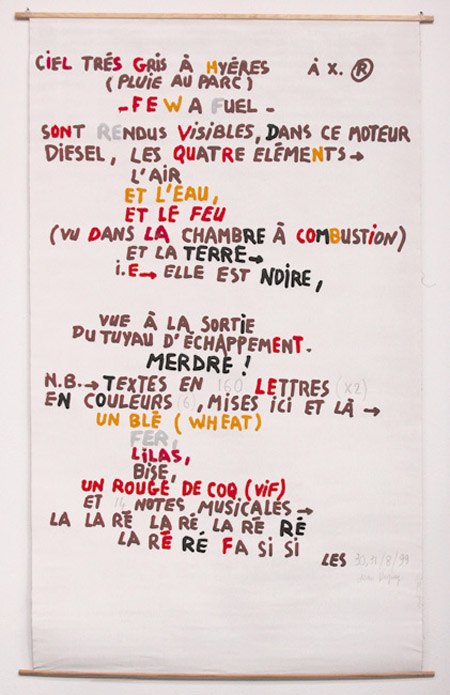 CIEL TRÉS GRIS À HYÉRES À X. ®
(PLUIE AU PARC)
- FEW A FUEL -
SONT RENDUS VISIBLES, DANS CE MOTEUR
DIESEL, LES QUATRE ELÉMENTS →
L'AIR
ET L'EAU,
ET LE FEU
(VU DANS LA CHAMBRE À COMBUSTION)
ET LA TERRE →
i.E → ELLE EST NOIRE,
VUE À LA SORTIE
DU TUYAU D'ÉCHAPPEMENT.
MERDRE !
N.B. → TEXTES EN 160 LETTRES (X2)
EN COULEURS (6), MISES ICI ET LÀ →
UN BLÉ (WHEAT)
FER,
LILAS,
BISE,
UN ROUGE DE COQ (VIF)
ET 14 NOTES MUSICALES →
LA LA RÉ LA RÉ LA RÉ RÉ
LA RÉ RÉ FA SI SI
LES 30, 11/8/99